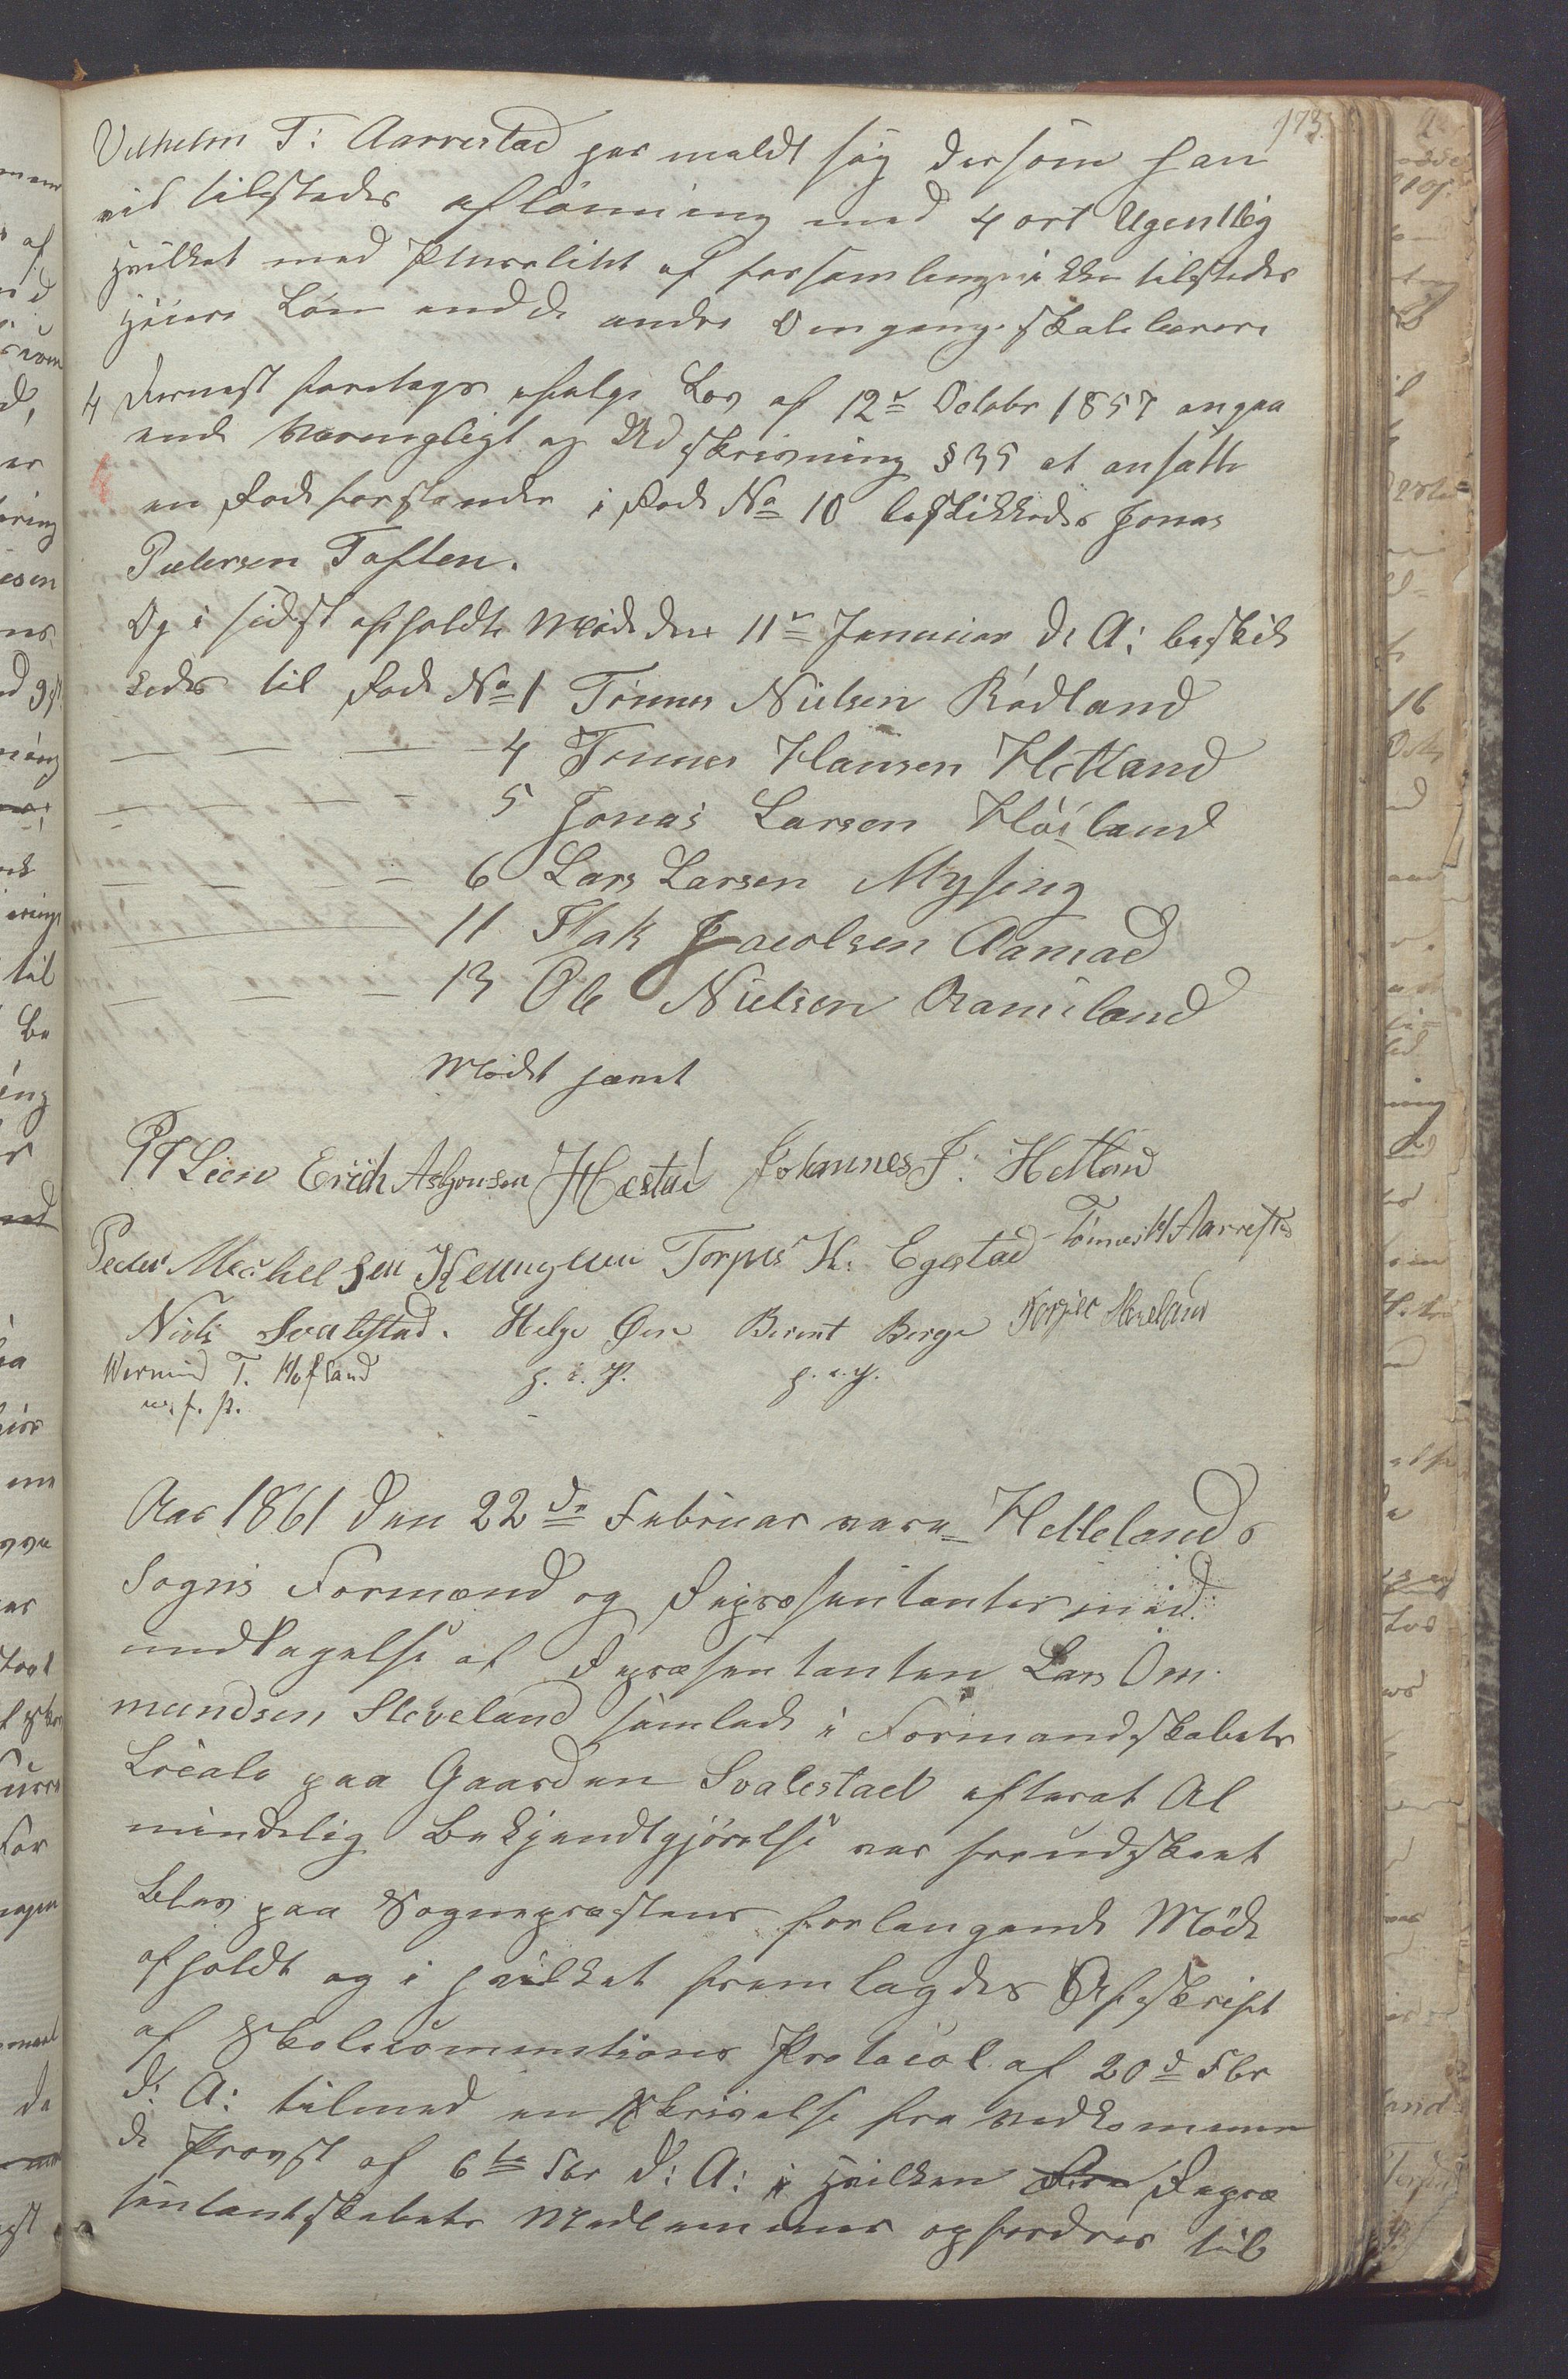 173.
Vilhelm T: Aarrestad har meldt sig dersom han
vil tilstedes aflønning med 4 ort Ugentlig
hvilket med Pluralitet af forsamlingen ikke tilstedes
høiere Løn end de andre Omgangsskolelærere
4 Dernæst foretages ifølge Lov af 12te Octobr 1857 angaa
ende Værnepligt og Udskrivning § 35 at ansætte
en Rodeforstander i Rode No 10 beskikkedes Jonas
Pedersen Toften.
Og i sidst afholdte Møde den 11te Januar d: A: beskik
kedes til Rode No 1 Tønnes Nielsen Rødland
— — — — 4 Tønnes Hansen Hetland
— — — — 5 Jonas Larsen Høiland
— — — — 6 Lars Larsen Mysing
11 Flak Jacobsen Aamod
— — — — 13 Ole Nielsen Ramsland
Mødet hævet
P T Lien Erich Asbjønsen Hæstad Johannes J. Hetland
Peder Michelsen Torger K: Egestad Tønnes H Aarrestad
Niels Svalestad. Helge Øen Berent Berge Torger
T. Hofland h. i. P. h. i. P.
m. f. P.
Aar 1861 den 22de Februar vare Hetlelands
Sogns Formænd og Repræsentanter med
undtagelse af Repræsentanten Lars Om
mundsen Sleveland samlede i Formandskabets
Locale paa Gaarden Svalestad efterat Al
mindelig Bekjendtgjørelse var fremskeet
blev paa Sognepræstens forlangende Møde
afholdt og i hvilket fremlagdes Afskrift
af Skolecommissions Protocol af 20de Fbr
d: A: tilmed en Skrivelse fra vedkommen
de Provst af 6te Fbr d: A: i hvilken Repræ
sentantskabets Medlemmer opfordres til